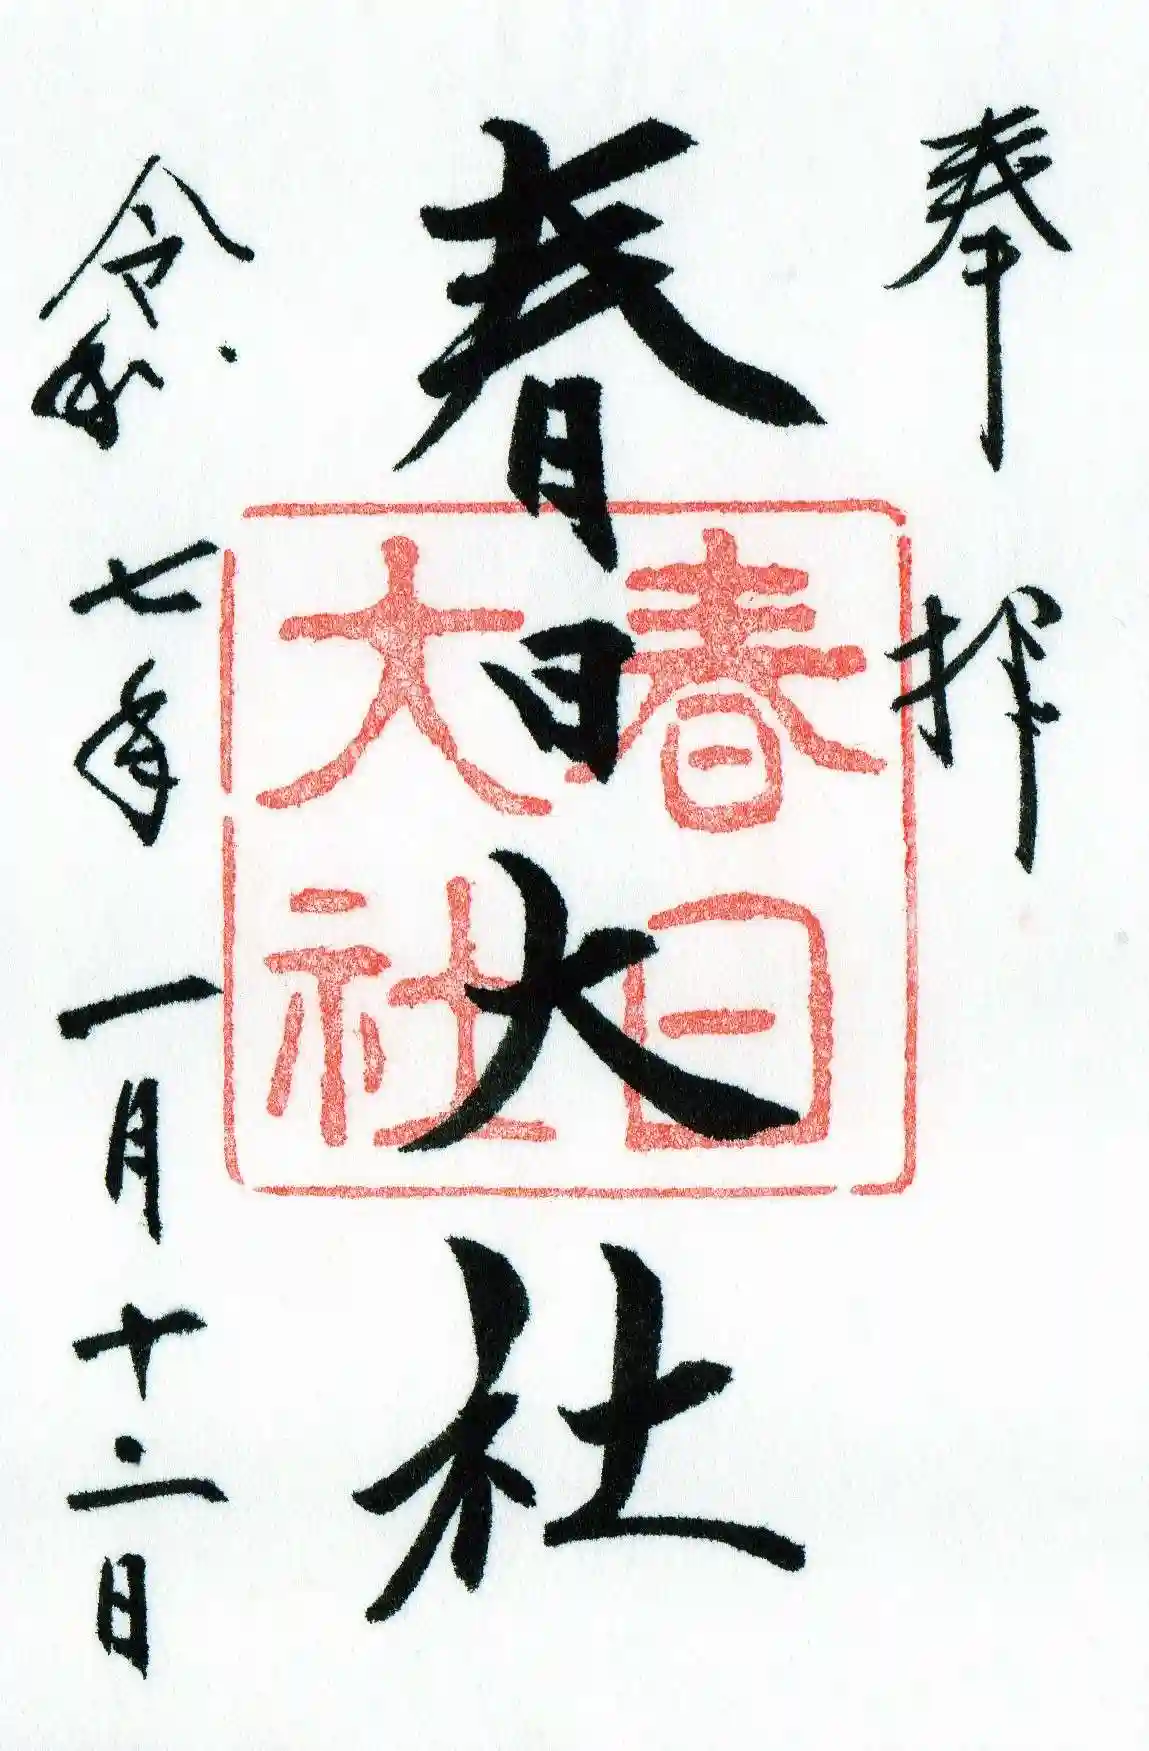 奉拝
春日大社
春日
大社
令和七年一月十二日